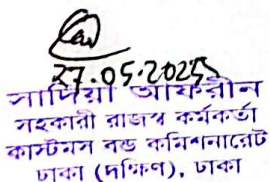 27.05.2025
সাদিয়া আফরীন
সহকারী রাজস্ব কর্মকর্তা
কাস্টমস বন্ড কমিশনারেট
ঢাকা (দক্ষিণ), ঢাকা